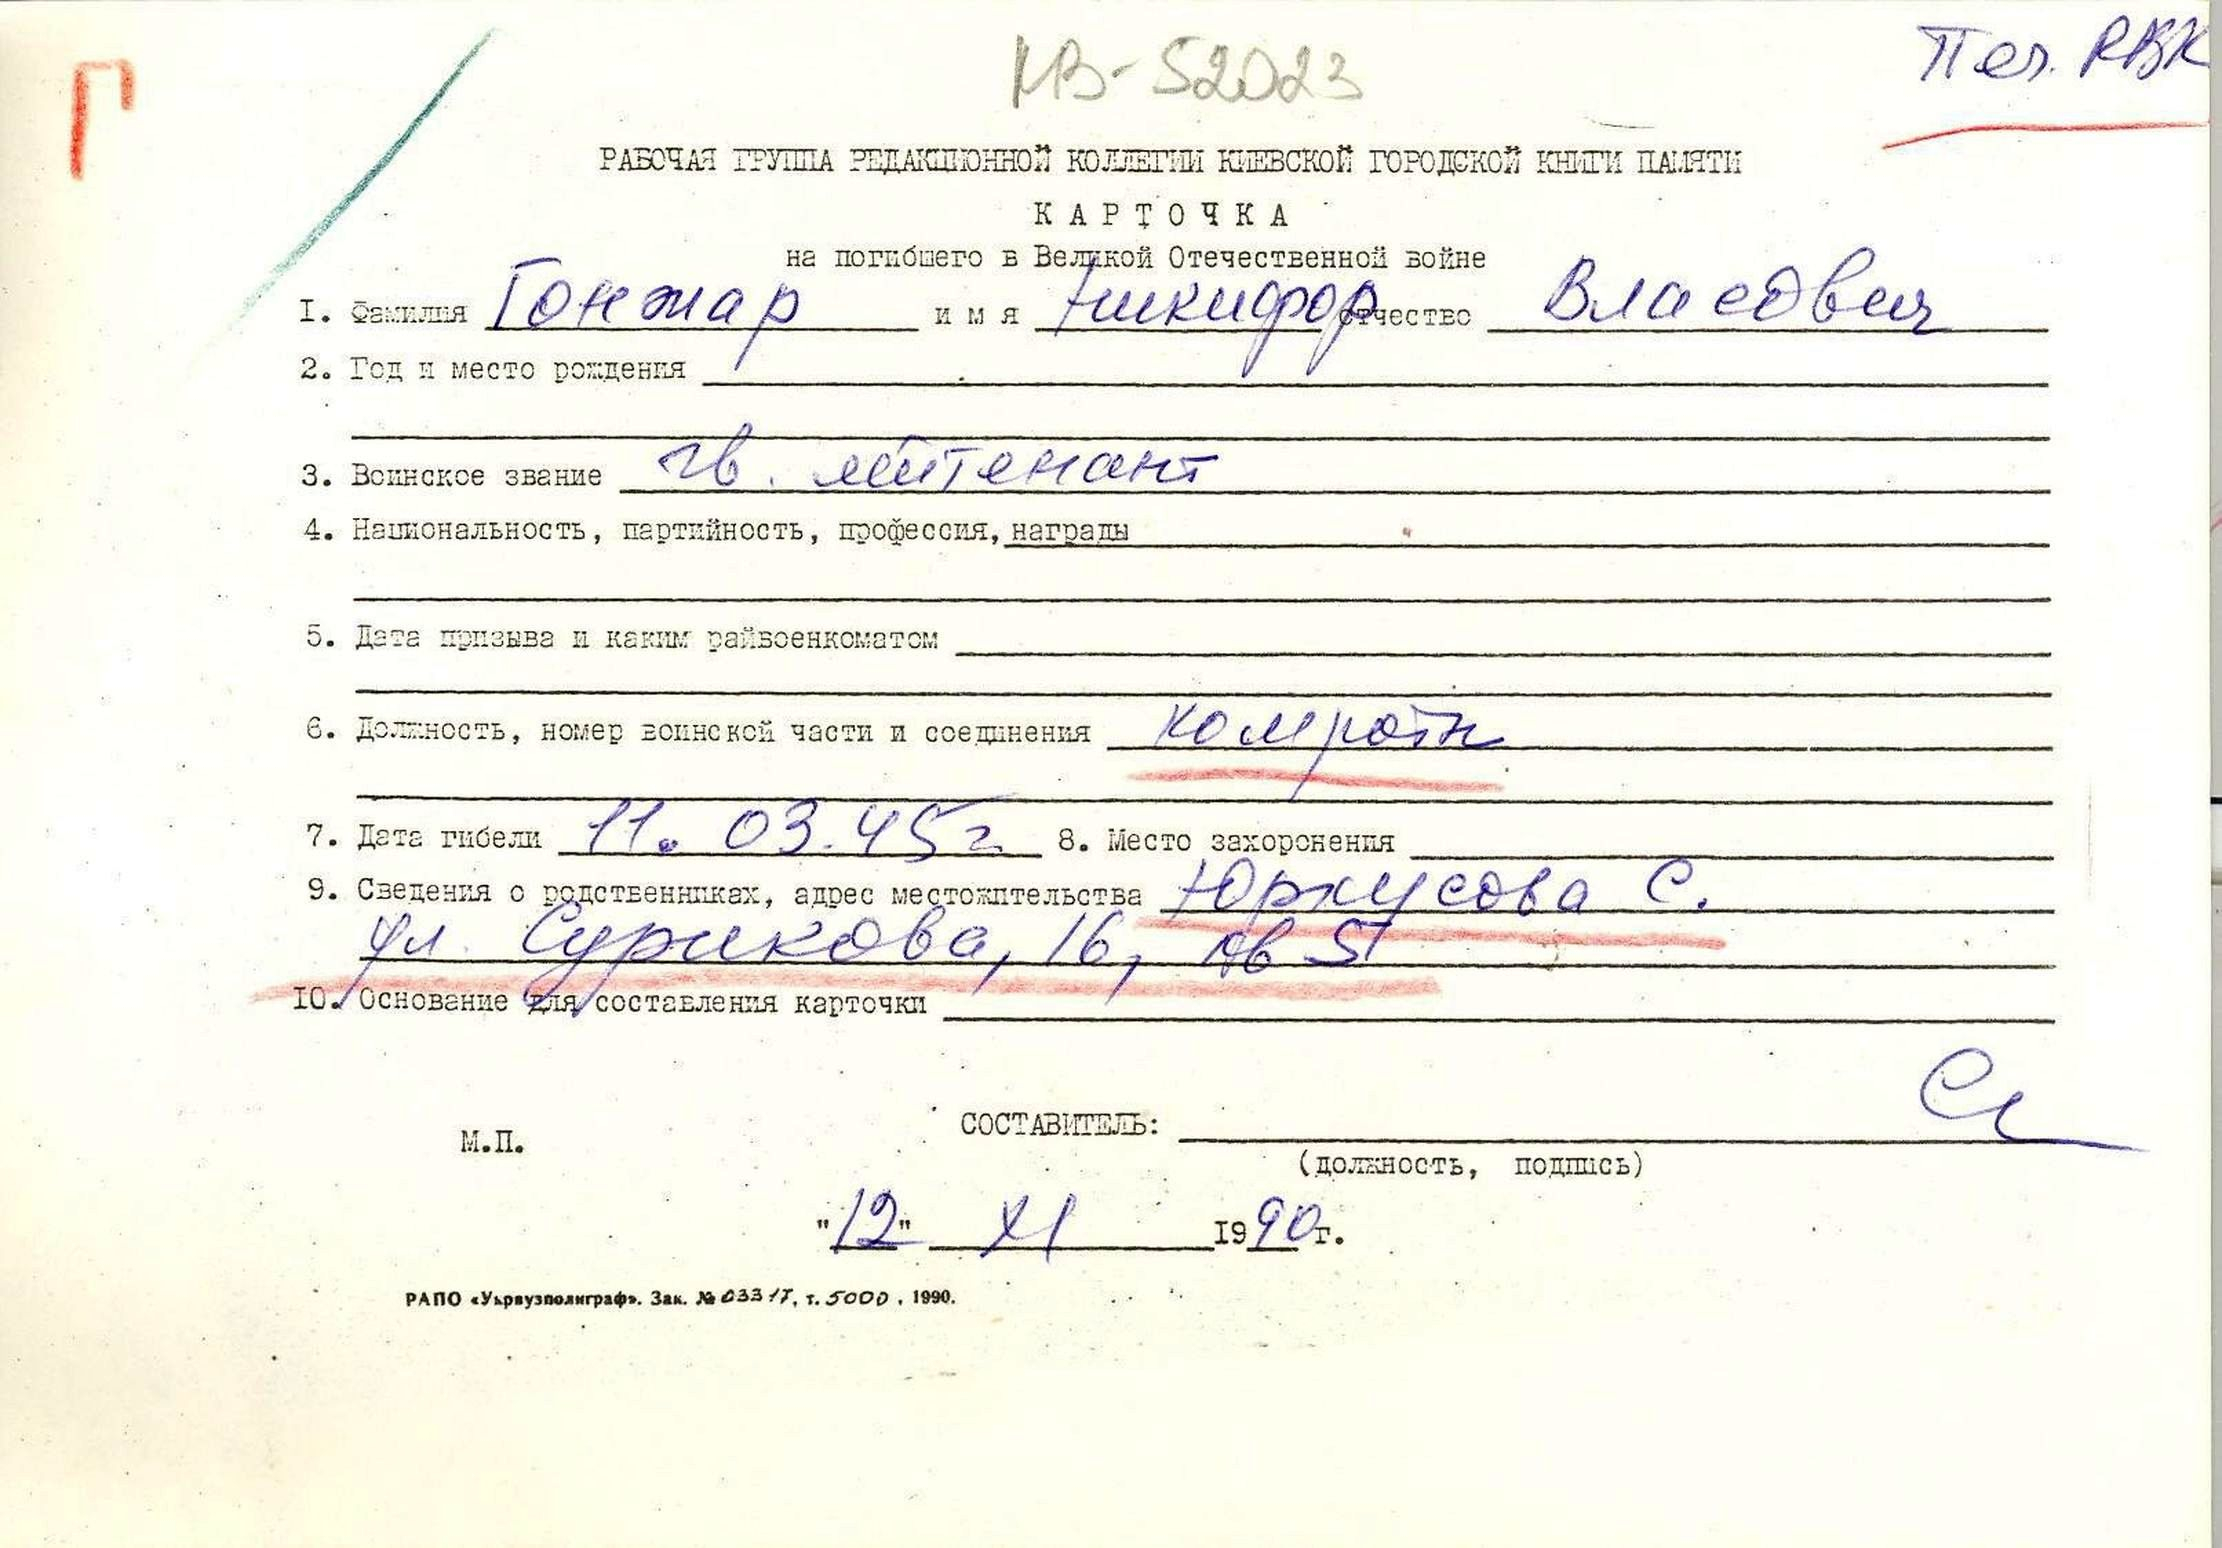 Г
КВ-52023
Печ. РВК
РАБОЧАЯ ГРУППА РЕДАКЦИОННОЙ КОЛЛЕГИИ КИЕВСКОЙ ГОРОДСКОЙ КНИГИ ПАМЯТИ
КАРТОЧКА
на погибшего в Великой Отечественной войне
1. Фамилия Гонжар имя Никифор отчество Власович
2. Год и место рождения
3. Воинское звание гв. лейтенант
4. Национальность, партийность, профессия, награды
5. Дата призыва и каким райвоенкоматом
6. Должность, номер воинской части и соединения ком роты
7. Дата гибели 11.03.45 г. 8. Место захоронения
9. Сведения о родственниках, адрес местожительства С.
ул. Сурикова, 16, кв 5
10. Основание для составления карточки
СОСТАВИТЕЛЬ:
М.П.
(должность, подпись)
"12" XI 1990 г.
РАПО «Укрвузполиграф». Зак. № 0331т, т. 5000, 1990.